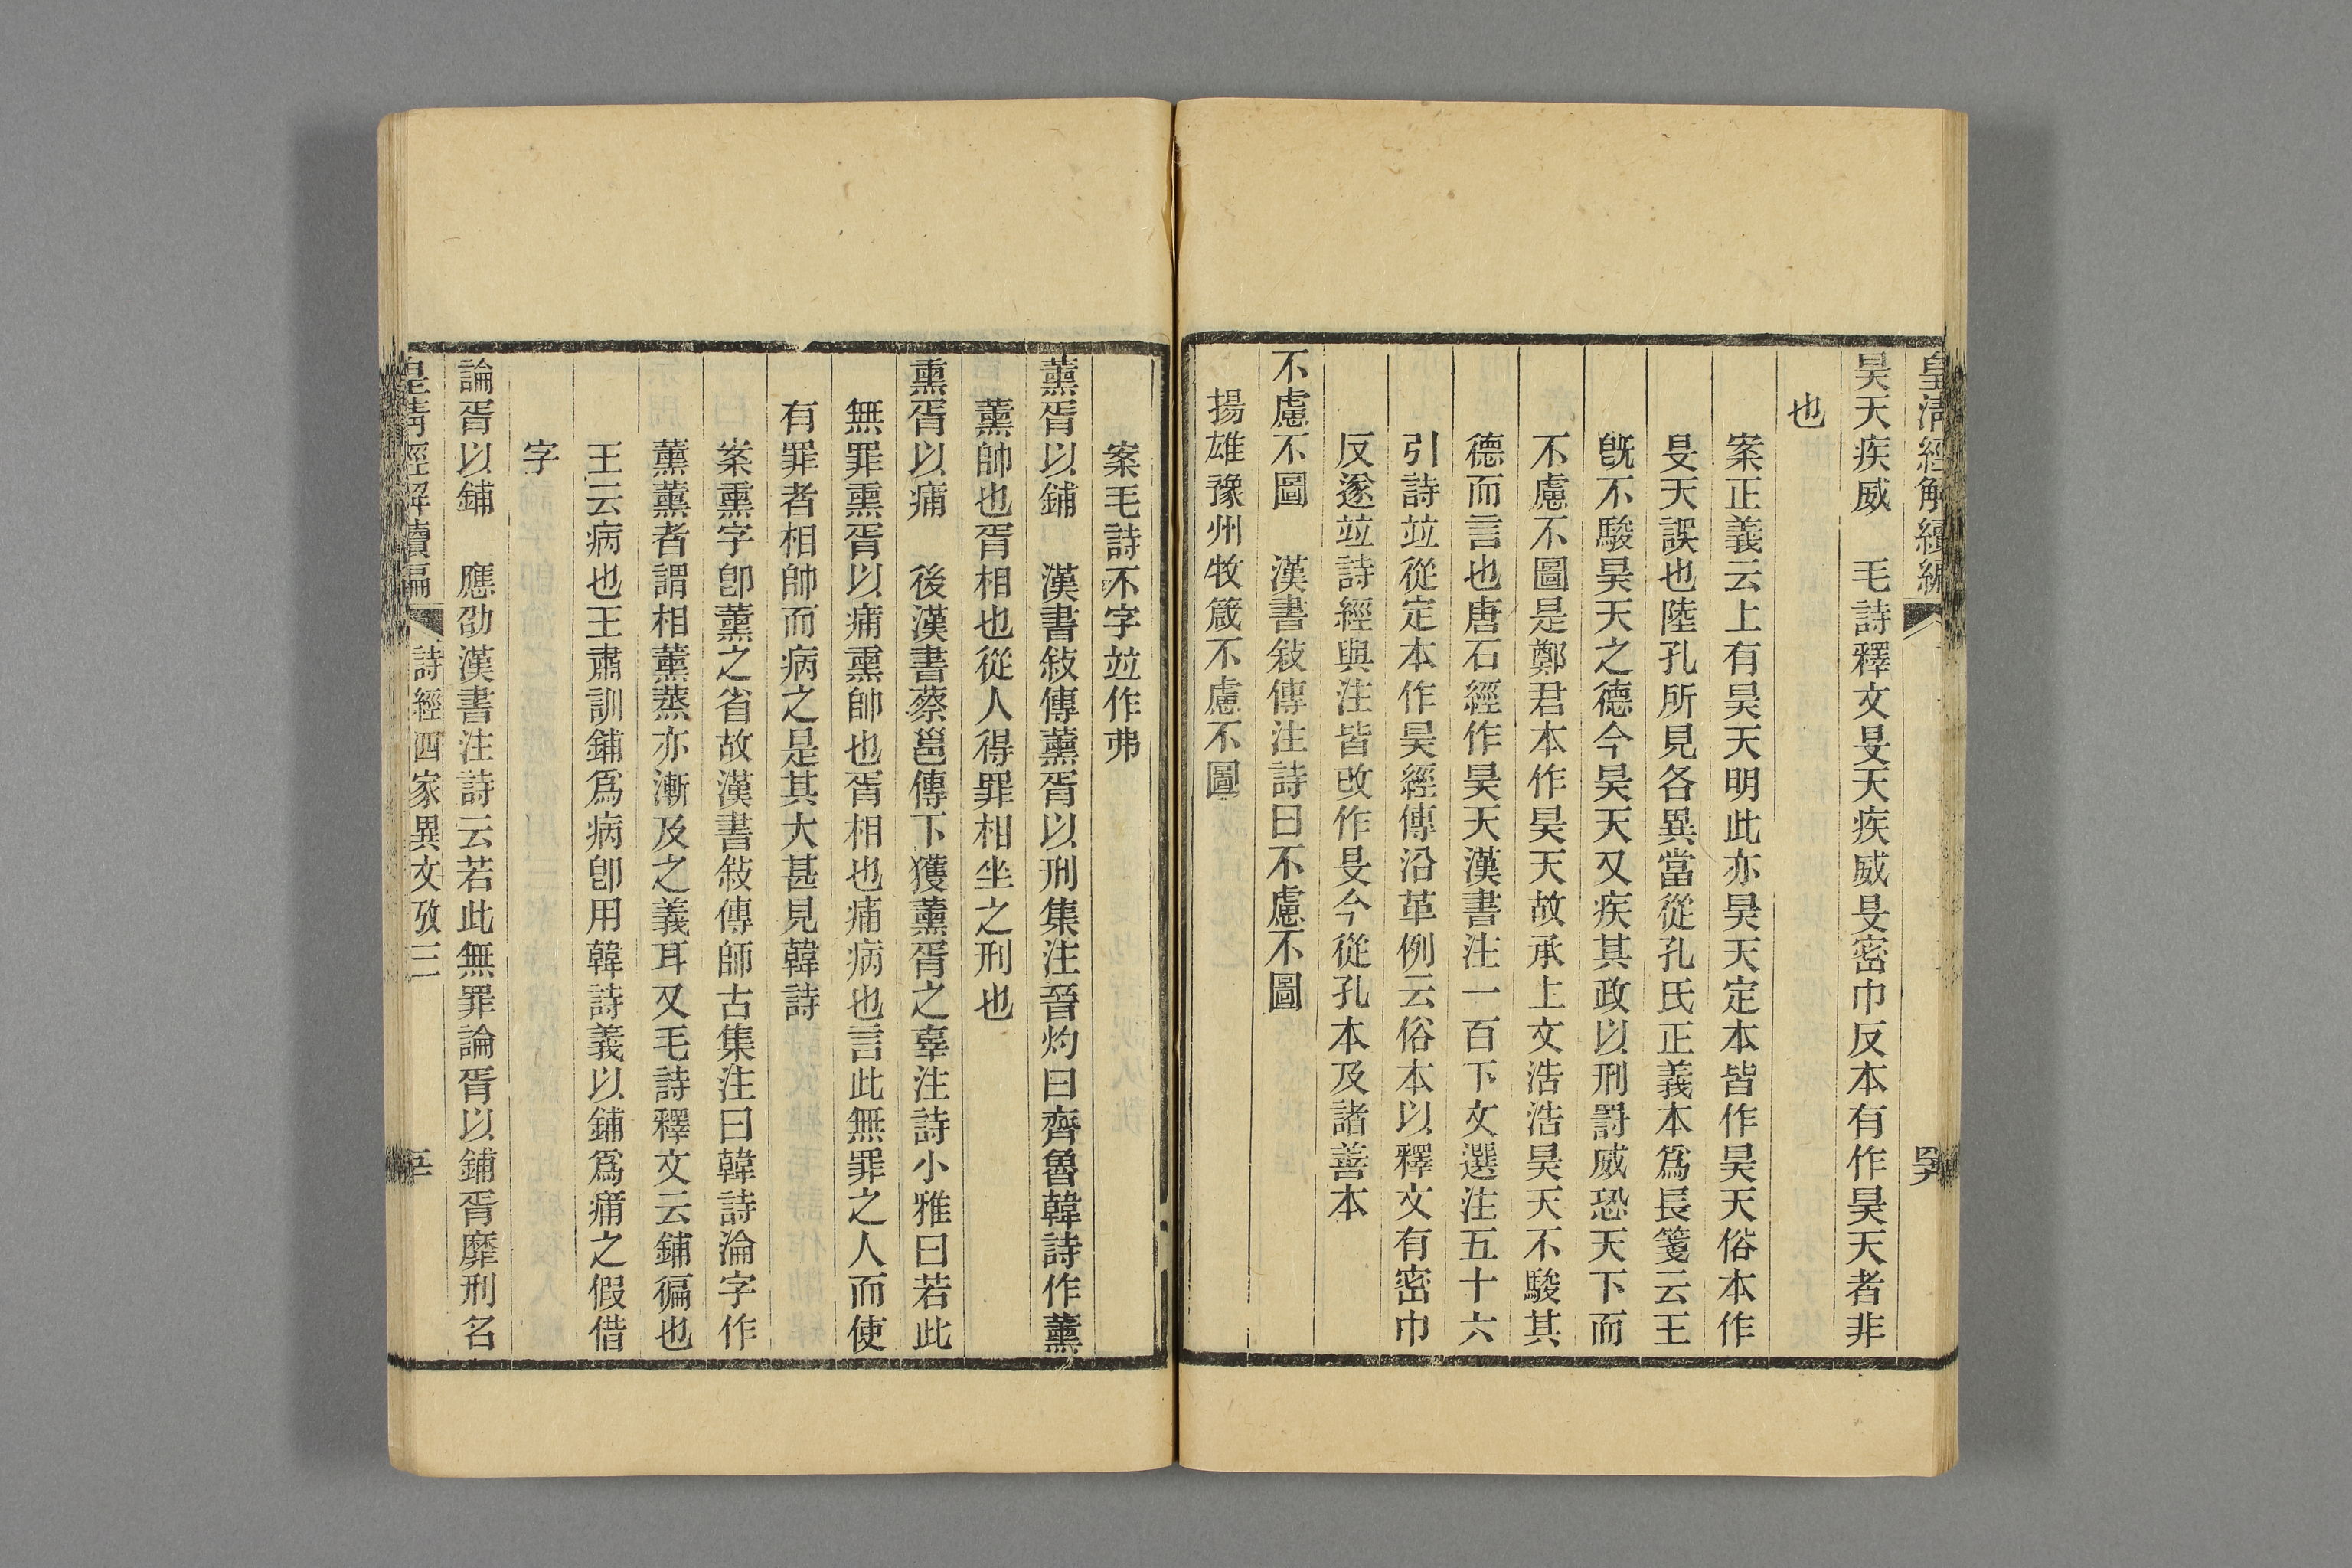 皇淸經解續編
昊天疾威　毛詩釋文旻天疾威旻密巾反本有作昊天者非
也
案正義云上有昊天明此亦昊天定本皆作昊天俗本作
旻天誤也陸孔所見各異當從孔氏正義本爲長箋云王
旣不駿昊天之德今昊天又疾其政以刑罸威恐天下而
不慮不圖是鄭君本作昊天故承上文浩浩昊天不駿其
德而言也唐石經作昊天漢書注一百下文選注五十六
引詩竝從定本作昊經傳沿革例云俗本以釋文有密巾
反遂竝詩經與注皆改作旻今從孔本及諸善本
不慮不圖　漢書敍傳注詩曰不慮不圖
揚雄豫州牧箴不慮不圖
案毛詩不字竝作弗
薰胥以鋪　漢書敍傳薰胥以刑集注晉灼曰齊魯韓詩作薰
薰帥也胥相也從人得罪相坐之刑也
熏胥以痡　後漢書蔡邕傳下獲薰胥之辜注詩小雅曰若此
無罪熏胥以痡熏帥也胥相也痡病也言此無罪之人而使
有罪者相帥而病之是其大甚見韓詩
案熏字卽薰之省故漢書敍傳師古集注曰韓詩淪字作
薰薰者謂相薰蒸亦漸及之義耳又毛詩釋文云鋪徧也
王云病也王肅訓鋪爲病卽用韓詩義以鋪爲痡之假借
字
論胥以鋪　應劭漢書注詩云若此無罪論胥以鋪胥靡刑名
皇淸經解續編　詩經四家異文攷三